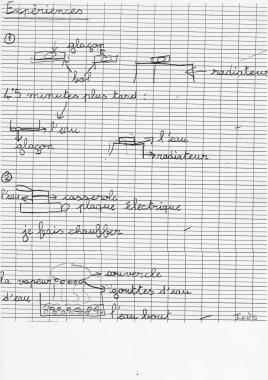 Expériences
①
glaçon
bol
radiateur
45 minutes plus tard :
l'eau
glaçon
l'eau
radiateur
②
l'eau
casserole
plaque électrique
je fais chauffer
couvercle
la vapeur
d'eau
gouttes d'eau
l'eau bout
Inès